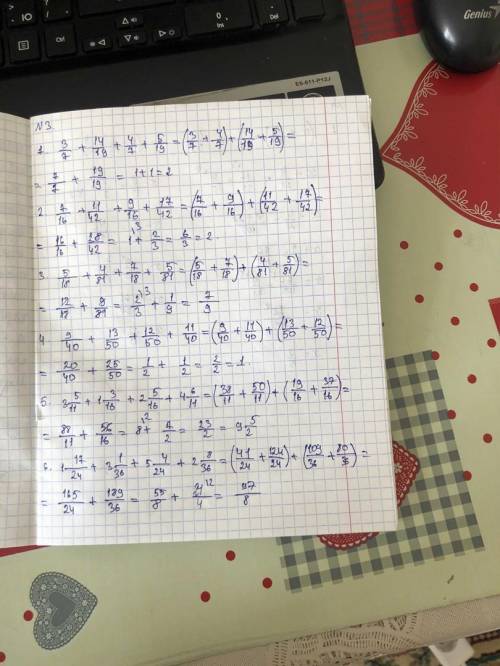 N3.
1. 3/7 + 14/19 + 4/7 + 5/19 = (3/7 + 4/7) + (14/19 + 5/19) =
= 7/7 + 19/19 = 1+1 = 2
2. 7/16 + 11/42 + 9/16 + 17/42 = (7/16 + 9/16) + (11/42 + 17/42) =
= 16/16 + 28/42 = 1 + 2/3 = 6/3 = 2.
3. 5/18 + 4/81 + 7/18 + 5/81 = (5/18 + 7/18) + (4/81 + 5/81) =
= 12/18 + 9/81 = 2/3 + 1/9 = 7/9
4. 9/40 + 13/50 + 12/50 + 11/40 = (9/40 + 11/40) + (13/50 + 12/50) =
= 20/40 + 25/50 = 1/2 + 1/2 = 2/2 = 1.
5. 3 5/11 + 1 3/16 + 2 5/16 + 4 6/11 = (38/11 + 50/11) + (19/16 + 37/16) =
= 88/11 + 56/16 = 8 + 7/2 = 23/2 = 9 5/2
6. 1 17/24 + 3 1/36 + 5 4/24 + 2 8/36 = (41/24 + 124/24) + (109/36 + 80/36) =
= 165/24 + 189/36 = 55/8 + 21/4 = 97/8
Genius
Ctrl
End
Ins
Del